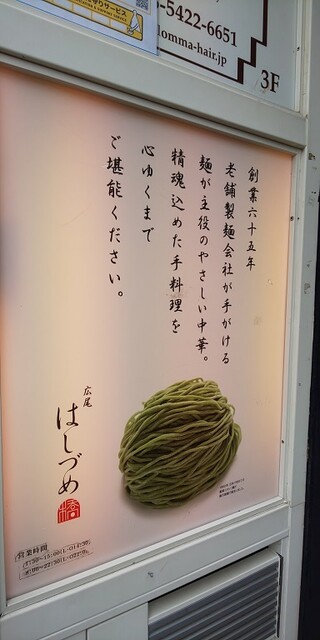 サービス
-5422-6651
omma-hair.jp
3F
創業六十五年
老舗製麺会社が手がける
麺が主役のやさしい中華。
精魂込めた手料理を
心ゆくまで
ご堪能ください。
広尾
はしづめ
営業時間